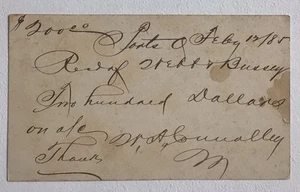 $200 00
Ports O Feby 12/85
Recd of Webb & Bussey
Two hundred Dollars
on a/c W. A. Connolley
Thanks